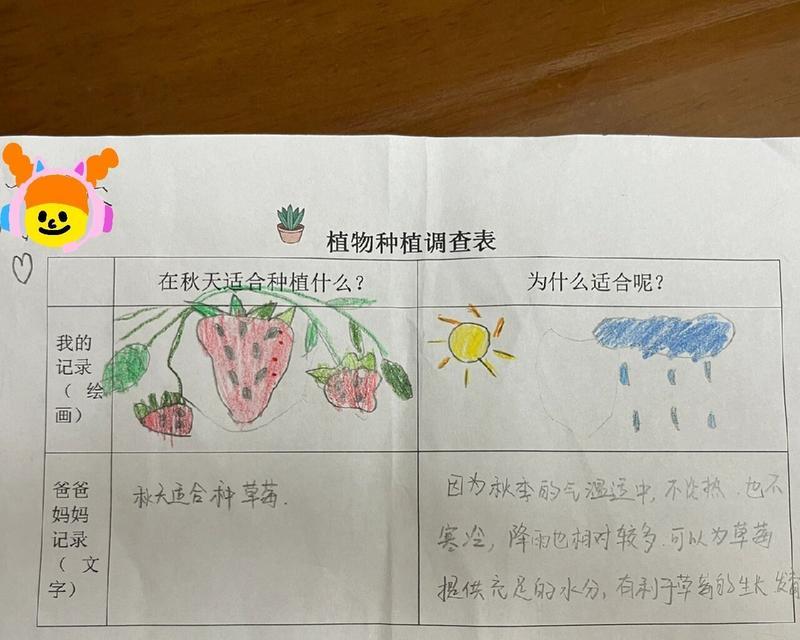 植物种植调查表
在秋天适合种植什么？
为什么适合呢？
我的
记录
（绘
画）
爸爸
妈妈
记录
（文
字）
秋天适合种草莓.
因为秋季的气温适中，不炎热.也不
寒冷，降雨也相对较多.可以为草莓
提供充足的水分，有利于草莓的生长发育